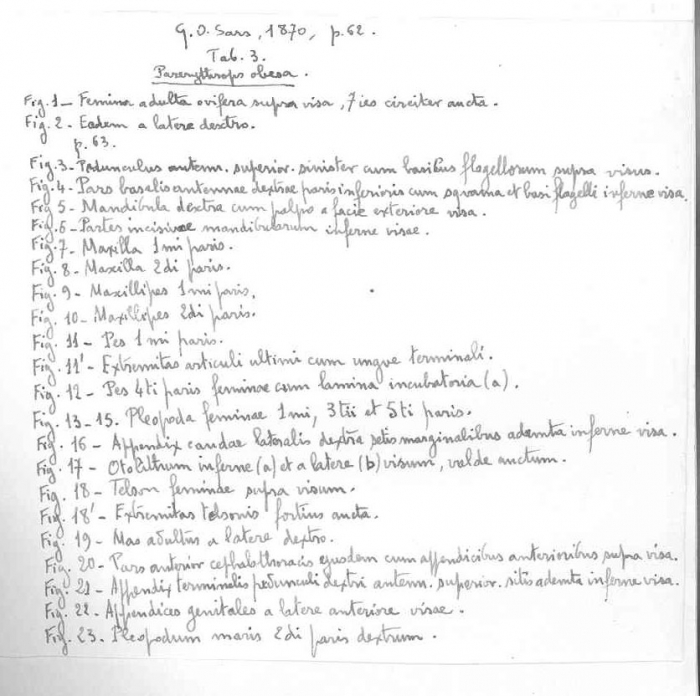 G. O. Sars, 1870, p. 62.
Tab. 3.
Parerythrops obesa.
Fig. 1 - Femina adulta ovifera supra visa, 7ies circiter aucta.
Fig. 2. Eadem a latere dextro.
p. 63.
Fig. 3. Pedunculus antenn. superior. sinister cum basibus flagellorum supra visus.
Fig. 4 - Pars basalis antennae dextrae paris inferioris cum squama et basi flagelli inferne visa.
Fig 5 - Mandibula dextra cum palpo a facie exteriore visa.
Fig. 6 - Partes incisivae mandibularum inferne visae.
Fig. 7 - Maxilla 1mi paris.
Fig. 8 - Maxilla 2di paris.
Fig. 9 - Maxillipes 1mi paris.
Fig. 10 - Maxillipes 2di paris.
Fig. 11 - Pes 1mi paris.
Fig. 11' - Extremitas articuli ultimi cum ungve terminali.
Fig. 12 - Pes 4ti paris feminae cum lamina incubatoria (a).
Fig. 13-15. Pleopoda feminae 1mi, 3tii et 5ti paris.
Fig. 16 - Appendix caudae lateralis dextra setis marginalibus ademta inferne visa.
Fig. 17 - Otolithum inferne (a) et a latere (b) visum, valde auctum.
Fig. 18 - Telson feminae supra visum.
Fig. 18' - Extremitas telsonis fortius aucta.
Fig. 19 - Mas adultus a latere dextro.
Fig. 20 - Pars anterior cephalothoracis ejusdem cum appendicibus anterioribus supra visa.
Fig. 21 - Appendix terminalis pedunculi dextri antenn. superior. sitis ademta inferne visa.
Fig. 22 - Appendices genitales a latere anteriore visae.
Fig. 23. Pleopodum maris 2di paris dextrum.